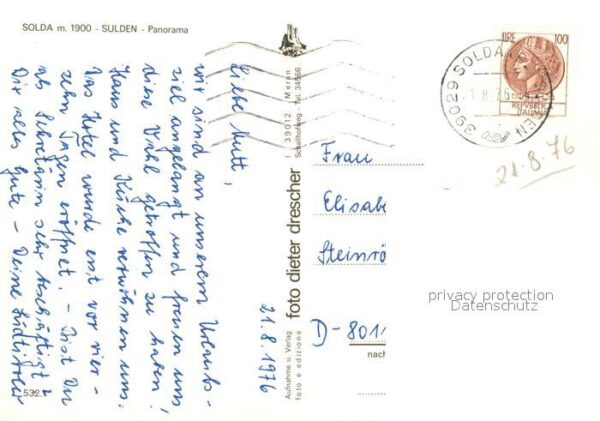 SOLDA m. 1900 - SULDEN - Panorama
21.8.1976
Liebe Mutt,
wir sind an unserem Urlaubs-
ziel angelangt und freuen uns
diese Wahl getroffen zu haben!
Haus und Küche verwöhnen uns.
Das Hotel wurde erst vor vier-
zehn Tagen eröffnet. - Bist Du
als Sekretärin sehr beschäftigt?
Dir alles Gute - Deine
532.
Aufnahme u. Verlag
foto e edizione
foto dieter drescher
I 39012 Meran
Schallhofweg - Tel. 34566
LIRE 100
REPVBBLICA
ITALIANA
39029 SOLDA
21-8-76
Frau
Elisabe
Steinrö
D-8011
nach
privacy protection
Datenschutz